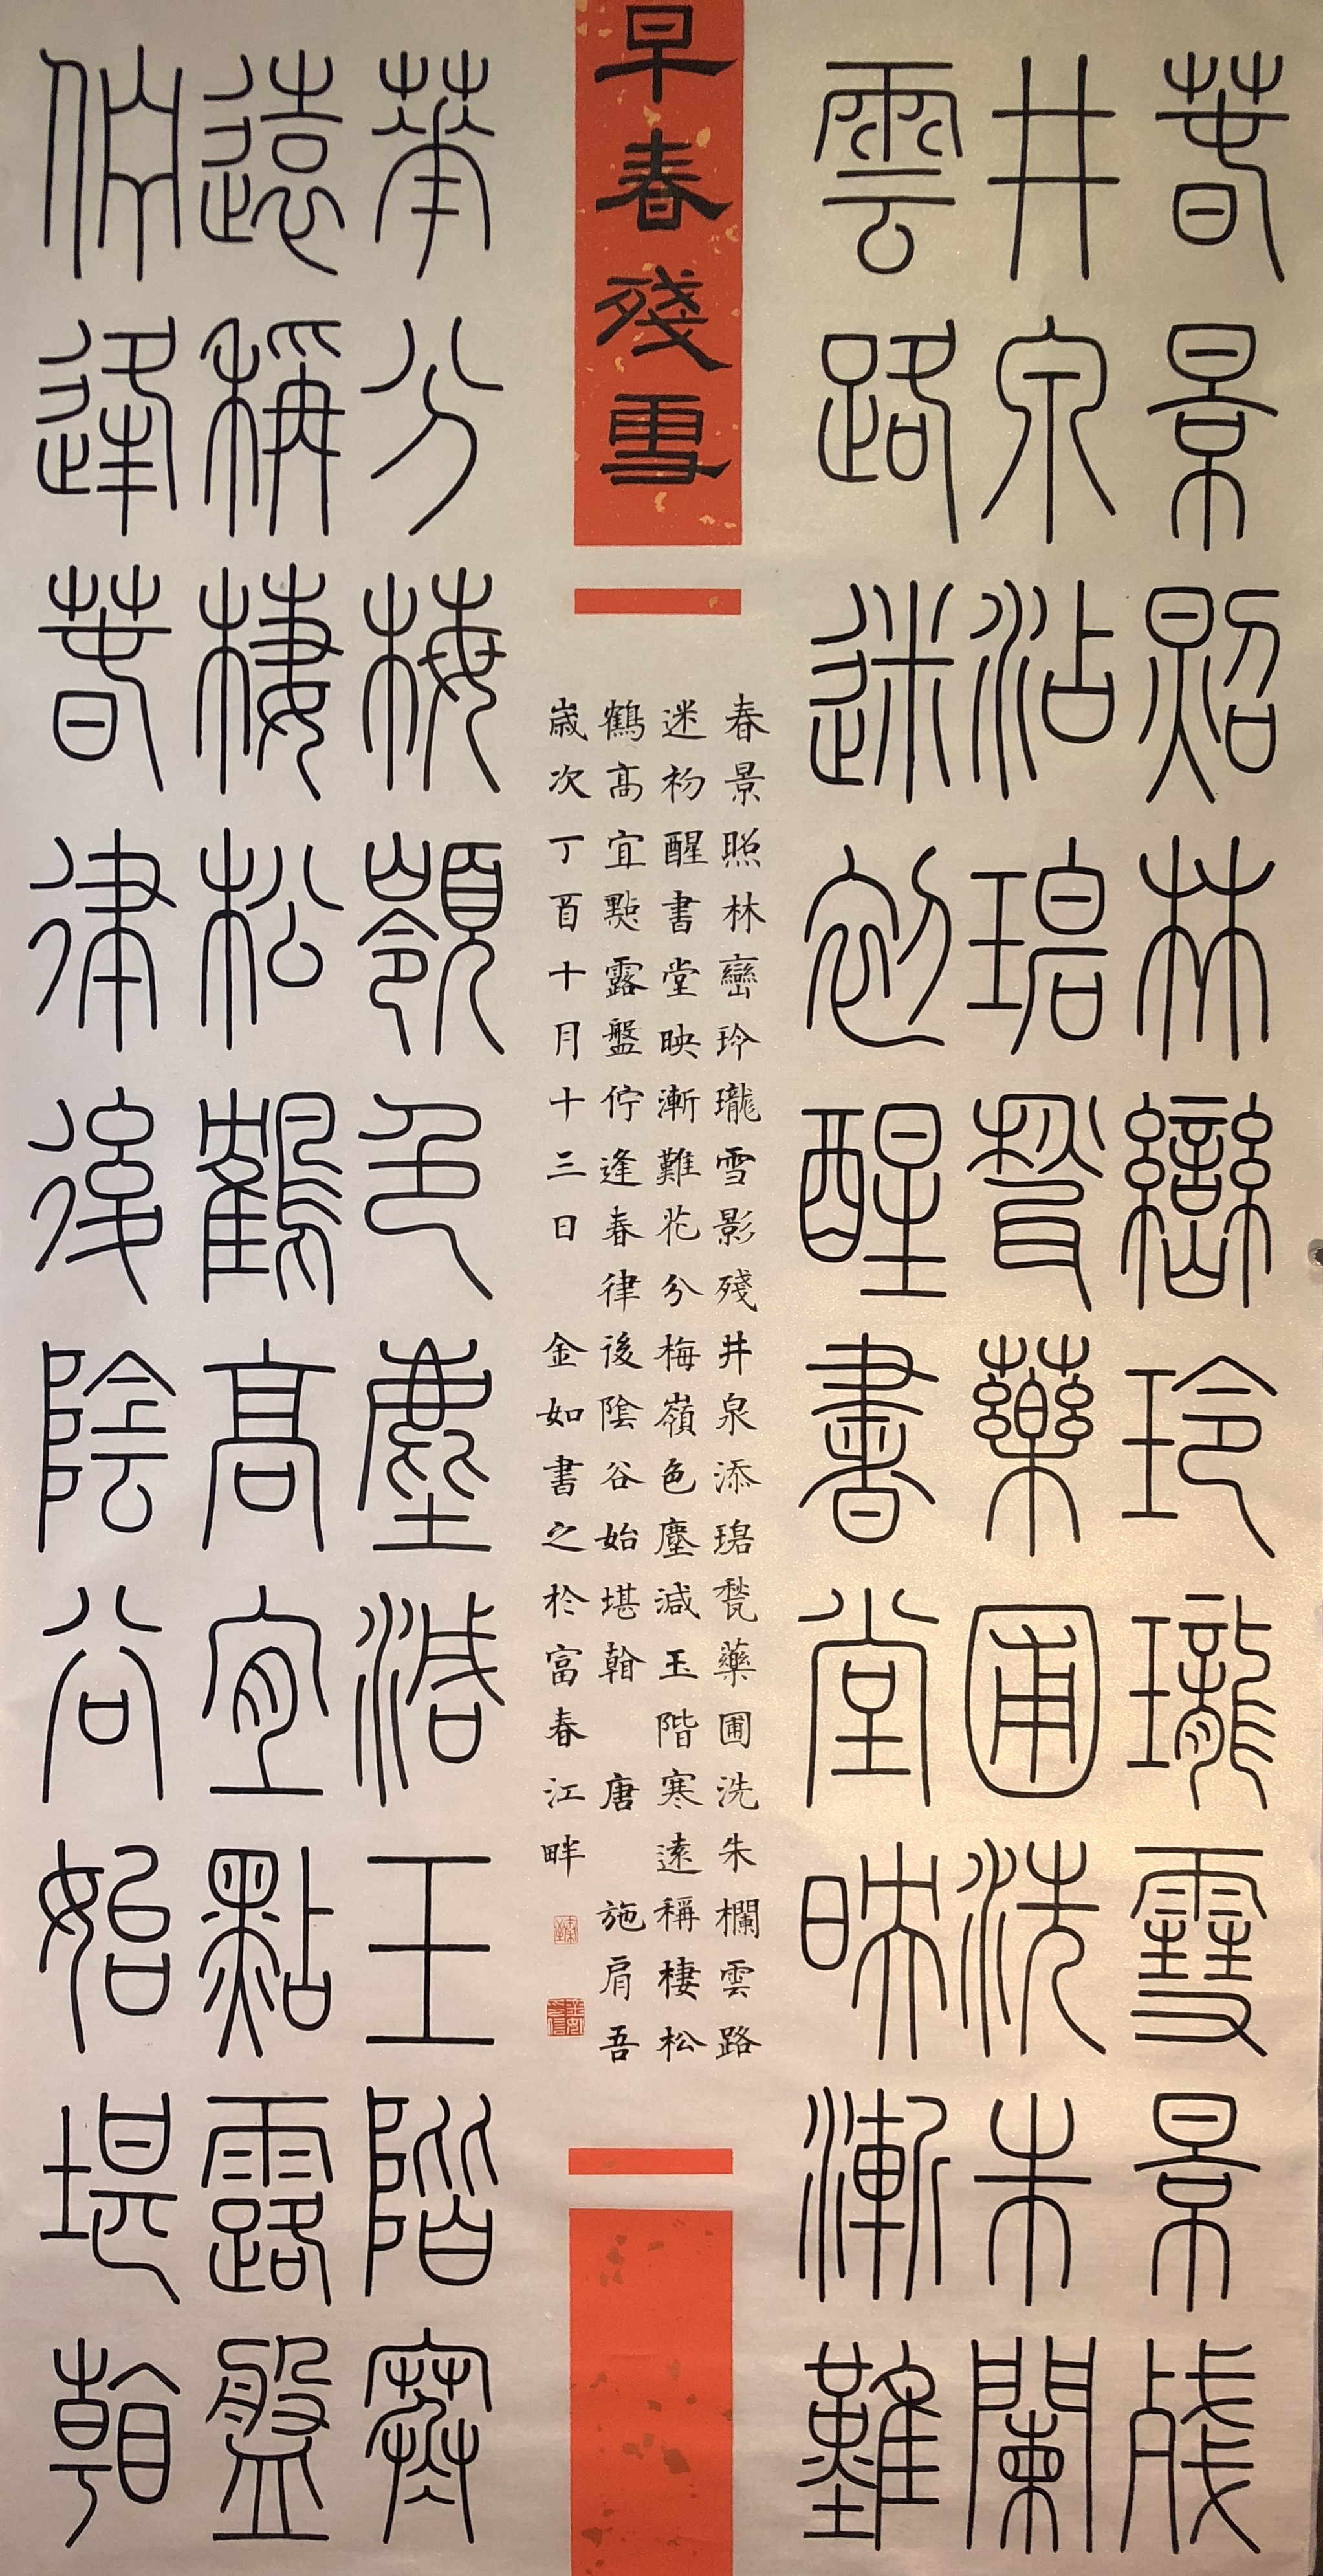 春景照林巒玲瓏雪景殘
井泉沾碧甃藥圃洗朱闌
雲路迷初醒書堂映漸難
早春殘雪
春景照林巒玲瓏雪影殘井泉添碧甃藥圃洗朱欄雲路
迷初醒書堂映漸難花分梅嶺色塵減玉階寒遠稱棲松
鶴高宜點露盤佇逢春律後陰谷始堪看 唐 施肩吾
歲次丁酉十月十三日 金如書之於富春江畔
華分梅嶺色塵減玉階寒
遠稱棲松鶴高宜點露盤
佇逢春律後陰谷始堪看